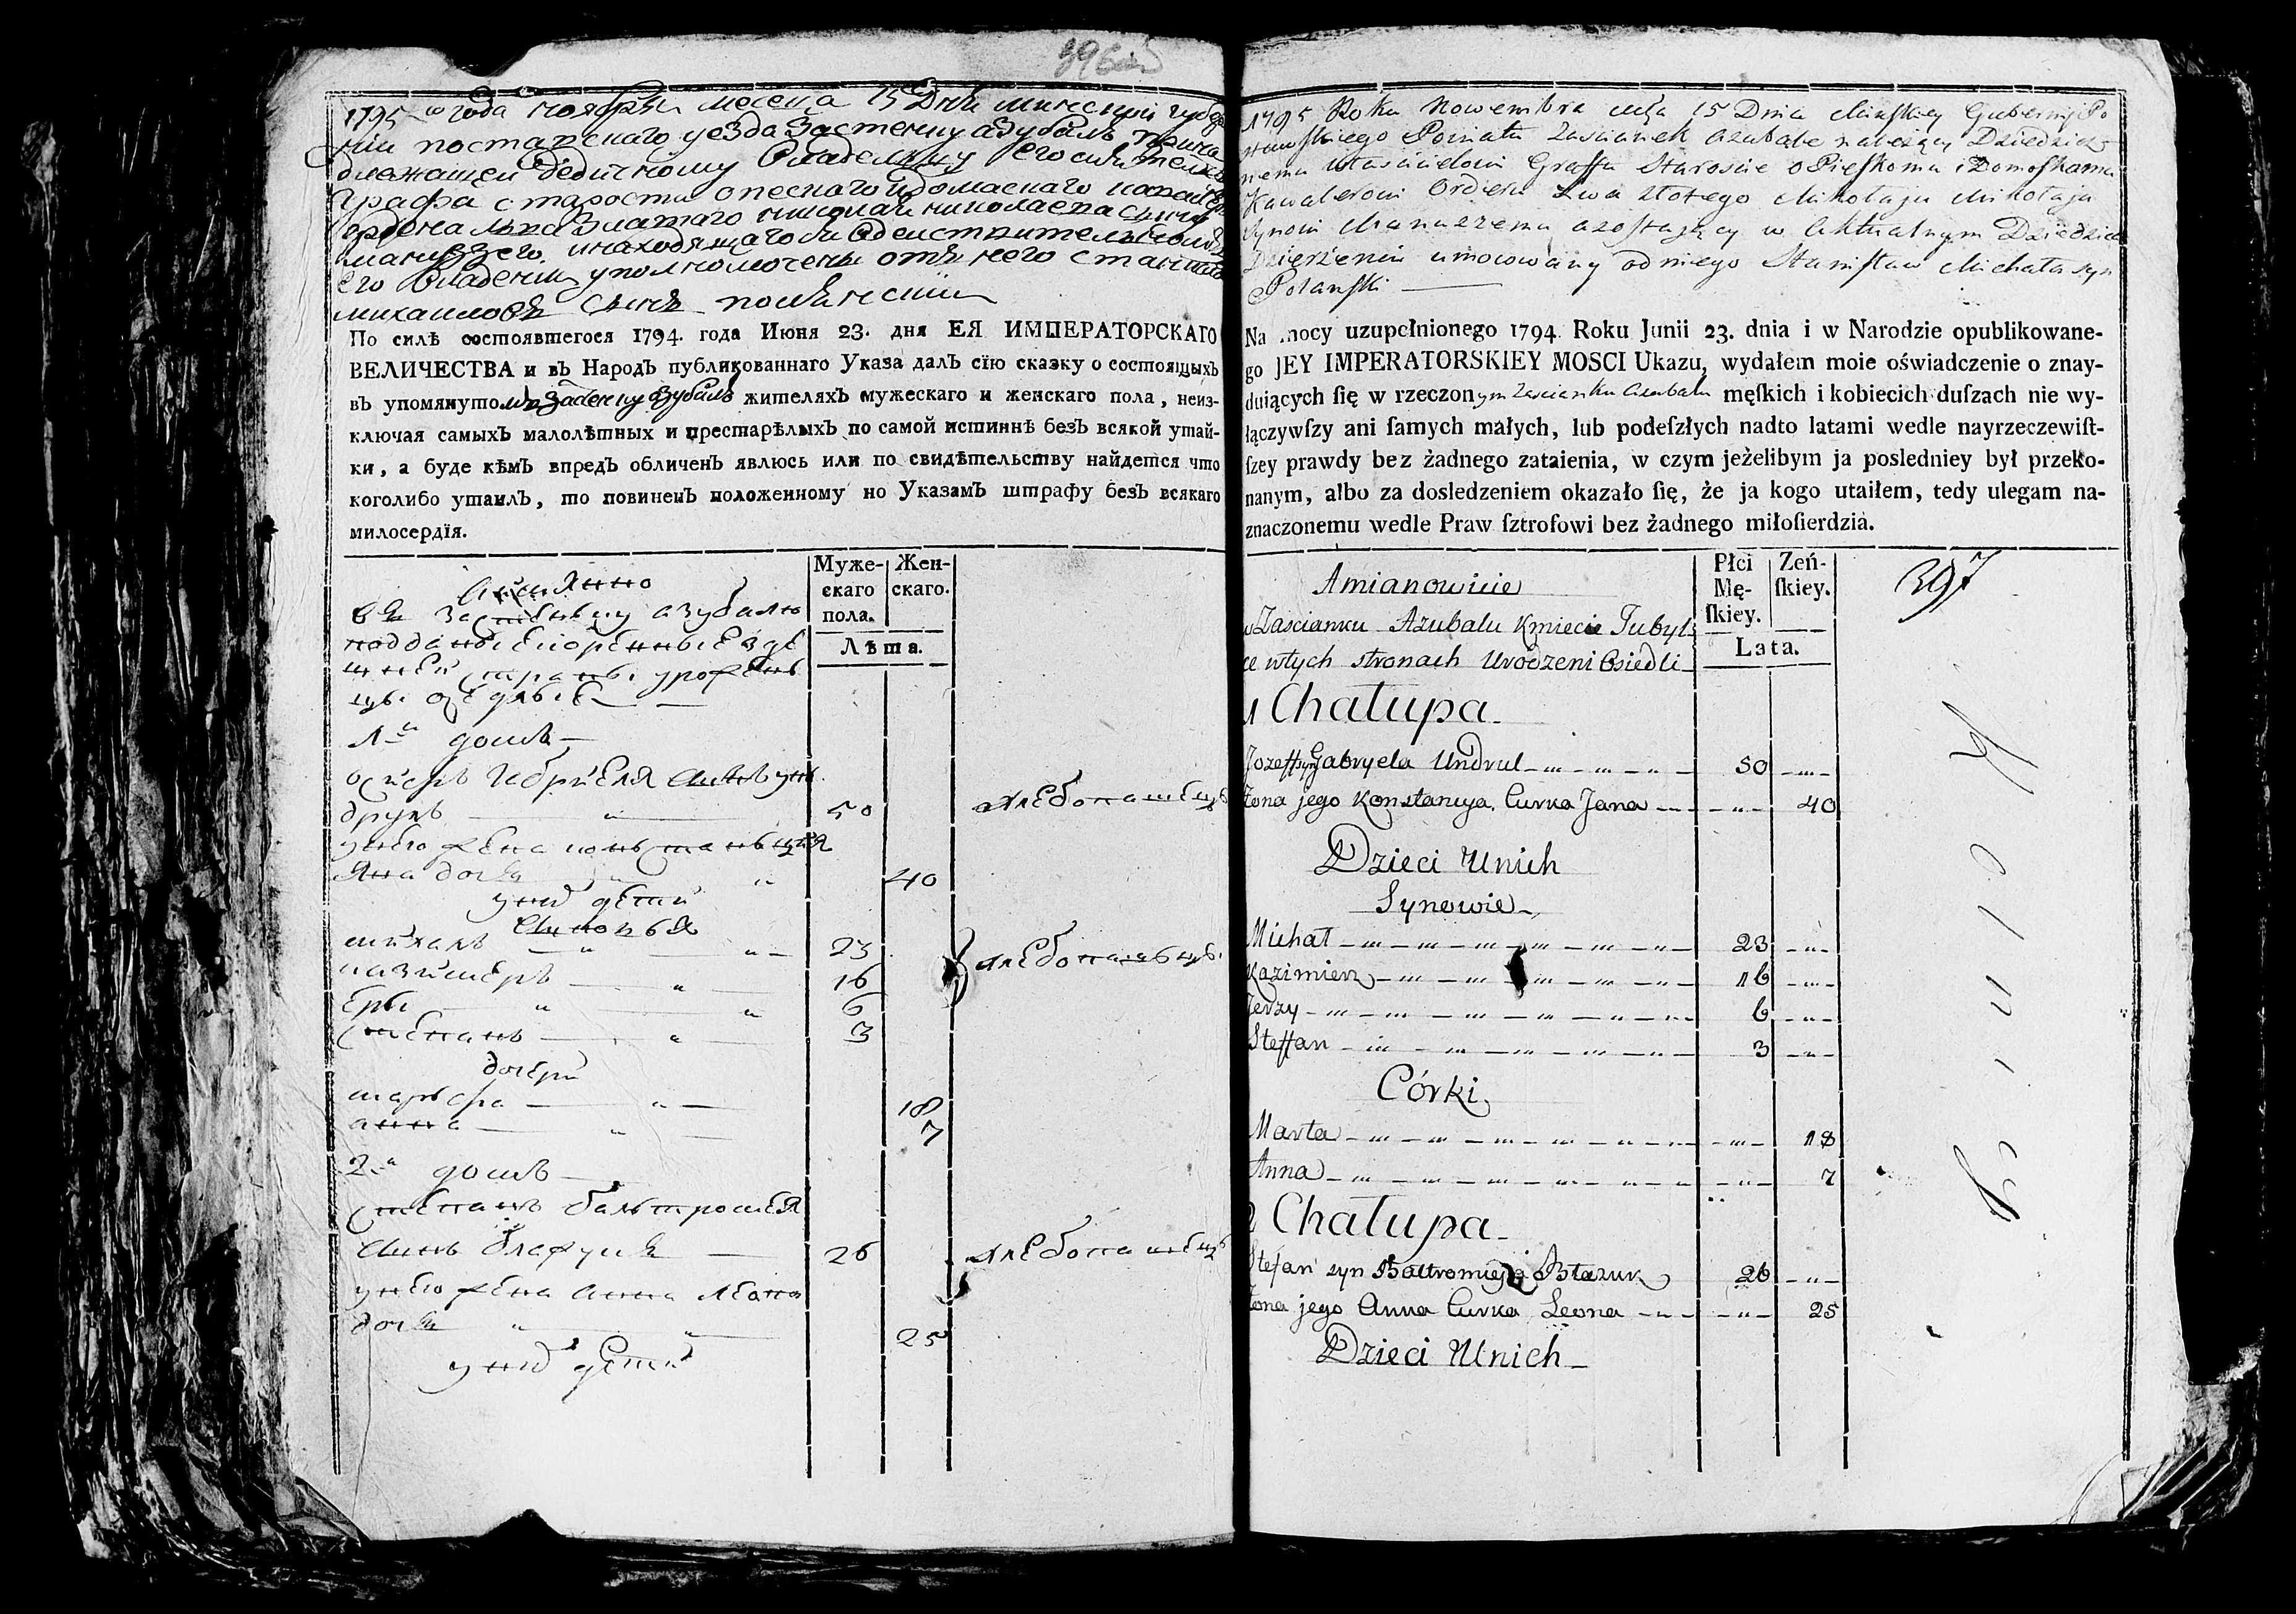 1795 го года ноября месеца 15 дня минской губер
нии поставскаго уезда застенку азубаль прина
длежащей дедичному владельцу его сиятельств
графа старости опескаго и домаскаго кавалер
ордена льва златаго николая николаева сына
мануззего находящагося в действительном
его владении уполномочены отъ него станислав
михаиловъ сынъ полянский
По силѣ состоявшегося 1794. года Июня 23. дня ЕЯ ИМПЕРАТОРСКАГО
ВЕЛИЧЕСТВА и въ Народъ публикованнаго Указа далъ сїю сказку о состоящыхъ
въ упомянутомъ застенку азубаль жителяхъ мужескаго и женскаго пола, неиз-
ключая самыхъ малолѣтныхъ и престарѣлыхъ по самой истиннѣ безъ всякой утай-
ки, а буде кѣмъ впредъ обличенъ явлюсь или по свидѣтельству найдется что
коголибо утаилъ, то повиненъ положенному по Указамъ штрафу безъ всякаго
милосердїя.
Муже-
скаго
пола.
Жен-
скаго.
Лѣта.
Имянно
въ застенку азубалю
подданые коренные зде
шней страны урожен
цы оседлые
1й домъ
осифъ габриеля сынъ ун
друль 50 хлебопашецъ
у него жена констаныция
Яна дочь 40
у них дети
Сыновья
михалъ 23
казимеръ 16 хлебопашцы
Еры 6
степанъ 3
дочери
марьфа 18
анна 7
2й домъ
степанъ балтромея
сынъ блажукъ 26 хлебопашецъ
у него жена анна леона
дочь 25
у них дети
1795 Roku Nowembra mſca 15 Dnia Minſkiey Gubernij Po
stawſkiego Powiatu Zascianek Azubale należący Dziedzicz
nemu Właścicielowi Graffu Staroscie oPieſkomu i Domoſkamu
Kawalerowi Orderu Lwa złotego Mikołaju Mikołaja
Synowi Manuzzemu azostający w Aktualnym Dziedzicz
Dzierżeniu umocowany od niego Stanisław Michała syn
Polanſki
Na mocy uzupełnionego 1794. Roku Junii 23. dnia i w Narodzie opublikowane-
go JEY IMPERATORSKIEY MOSCI Ukazu, wydałem moie oświadczenie o znay-
duiących ſię w rzeczonym Zascianku Azubalu męſkich i kobiecich duſzach nie wy-
łączywſzy ani ſamych małych, lub podeſzłych nadto latami wedle nayrzeczewiſt-
ſzey prawdy bez żadnego zataienia, w czym jeżelibym ja posledniey był przeko-
nanym, albo za dosledzeniem okazało ſię, że ja kogo utaiłem, tedy ulegam na-
znaczonemu wedle Praw ſztrofowi bez żadnego miłoſierdzia.
Płci
Mę-
ſkiey.
Zeń-
ſkiey.
Lata.
397
Amianowicie
w Zascianku Azubalu Kmiecie Tubyl
ce wtych stronach Urodzeni Osiedli
1 Chałupa
Jozeff syn Gabryela Undrul 50
Zona jego Konstancya Curka Jana 40
Dzieci Unich
Synowie
Michał 23
Kazimierz 16
Jerzy 6
Steffan 3
Córki
Marta 18
Anna 7
2 Chałupa
Stefan syn Baltromieja Błazuk 26
Zona jego Anna Curka Leona 25
Dzieci Unich